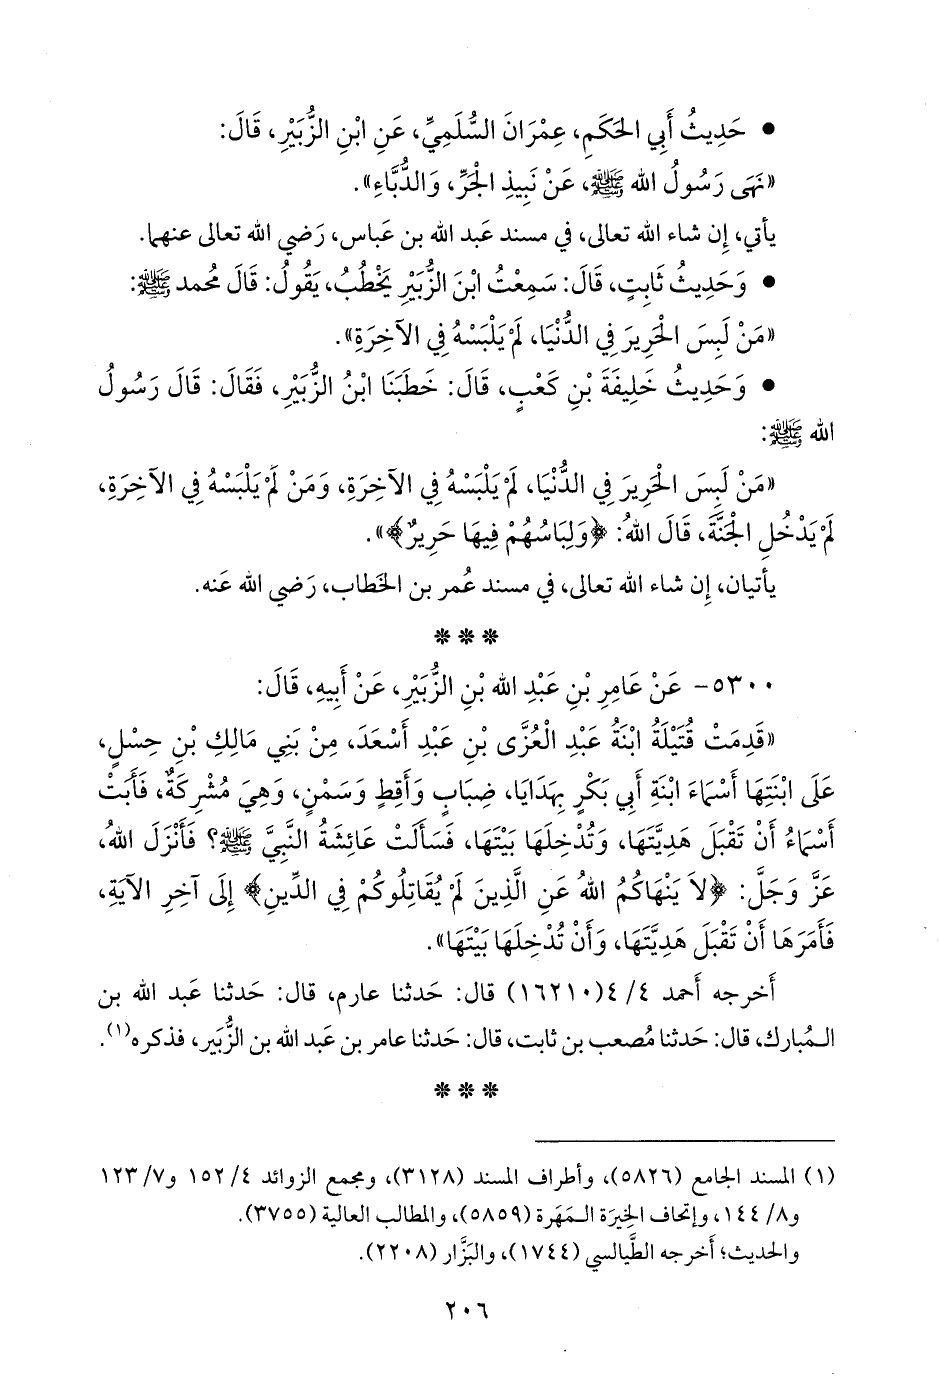 • حَدِيثُ أَبِي الحَكَمِ، عِمْرَانَ السُّلَمِيِّ، عَنِ ابْنِ الزُّبَيْرِ، قَالَ:
«نَهَى رَسُولُ الله ﷺ، عَنْ نَبِيذِ الْجَرِّ، وَالدُّبَّاءِ».
يأتي، إِن شاء الله تعالى، في مسند عَبد الله بن عَباس، رَضي الله تعالى عنهما.
• وَحَدِيثُ ثَابِتٍ، قَالَ: سَمِعْتُ ابْنَ الزُّبَيْرِ يَخْطُبُ، يَقُولُ: قَالَ مُحمد ﷺ:
«مَنْ لَبِسَ الْحَرِيرَ فِي الدُّنْيَا، لَمْ يَلْبَسْهُ فِي الآخِرَةِ».
• وَحَدِيثُ خَلِيفَةَ بْنِ كَعْبٍ، قَالَ: خَطَبَنَا ابْنُ الزُّبَيْرِ، فَقَالَ: قَالَ رَسُولُ
الله ﷺ:
«مَنْ لَبِسَ الْحَرِيرَ فِي الدُّنْيَا، لَمْ يَلْبَسْهُ فِي الآخِرَةِ، وَمَنْ لَمْ يَلْبَسْهُ فِي الآخِرَةِ،
لَمْ يَدْخُلِ الْجَنَّةَ، قَالَ اللهُ: ﴿وَلِبَاسُهُمْ فِيهَا حَرِيرٌ﴾».
يأتيان، إِن شاء الله تعالى، في مسند عُمر بن الخَطاب، رَضي الله عَنه.
* * *
٥٣٠٠- عَنْ عَامِرِ بْنِ عَبْدِ الله بْنِ الزُّبَيْرِ، عَنْ أَبِيهِ، قَالَ:
«قَدِمَتْ قُتَيْلَةُ ابْنَةُ عَبْدِ الْعُزَّى بْنِ عَبْدِ أَسْعَدَ، مِنْ بَنِي مَالِكِ بْنِ حِسْلٍ،
عَلَى ابْنَتِهَا أَسْمَاءَ ابْنَةِ أَبِي بَكْرٍ بِهَدَايَا، ضِبَابٍ وَأَقِطٍ وَسَمْنٍ، وَهِيَ مُشْرِكَةٌ، فَأَبَتْ
أَسْمَاءُ أَنْ تَقْبَلَ هَدِيَّتَهَا، وَتُدْخِلَهَا بَيْتَهَا، فَسَأَلَتْ عَائِشَةُ النَّبِيَّ ﷺ؟ فَأَنْزَلَ اللهُ،
عَزَّ وَجَلَّ: ﴿لاَ يَنْهَاكُمُ اللهُ عَنِ الَّذِينَ لَمْ يُقَاتِلُوكُمْ فِي الدِّينِ﴾ إِلَى آخِرِ الآيَةِ،
فَأَمَرَهَا أَنْ تَقْبَلَ هَدِيَّتَهَا، وَأَنْ تُدْخِلَهَا بَيْتَهَا».
أَخرجه أَحمد ٤/ ٤ (١٦٢١٠) قال: حَدثنا عارم، قال: حَدثنا عَبد الله بن
الـمُبارك، قال: حَدثنا مُصعب بن ثابت، قال: حَدثنا عامر بن عَبد الله بن الزُّبَير، فذكره(١).
* * *
(١) المسند الجامع (٥٨٢٦)، وأطراف المسند (٣١٢٨)، ومجمع الزوائد ٤/ ١٥٢ و٧/ ١٢٣
و٨/ ١٤٤، وإتحاف الخِيرَة الـمَهَرة (٥٨٥٩)، والمطالب العالية (٣٧٥٥).
والحديث؛ أَخرجه الطَّيالسي (١٧٤٤)، والبَزَّار (٢٢٠٨).
٢٠٦